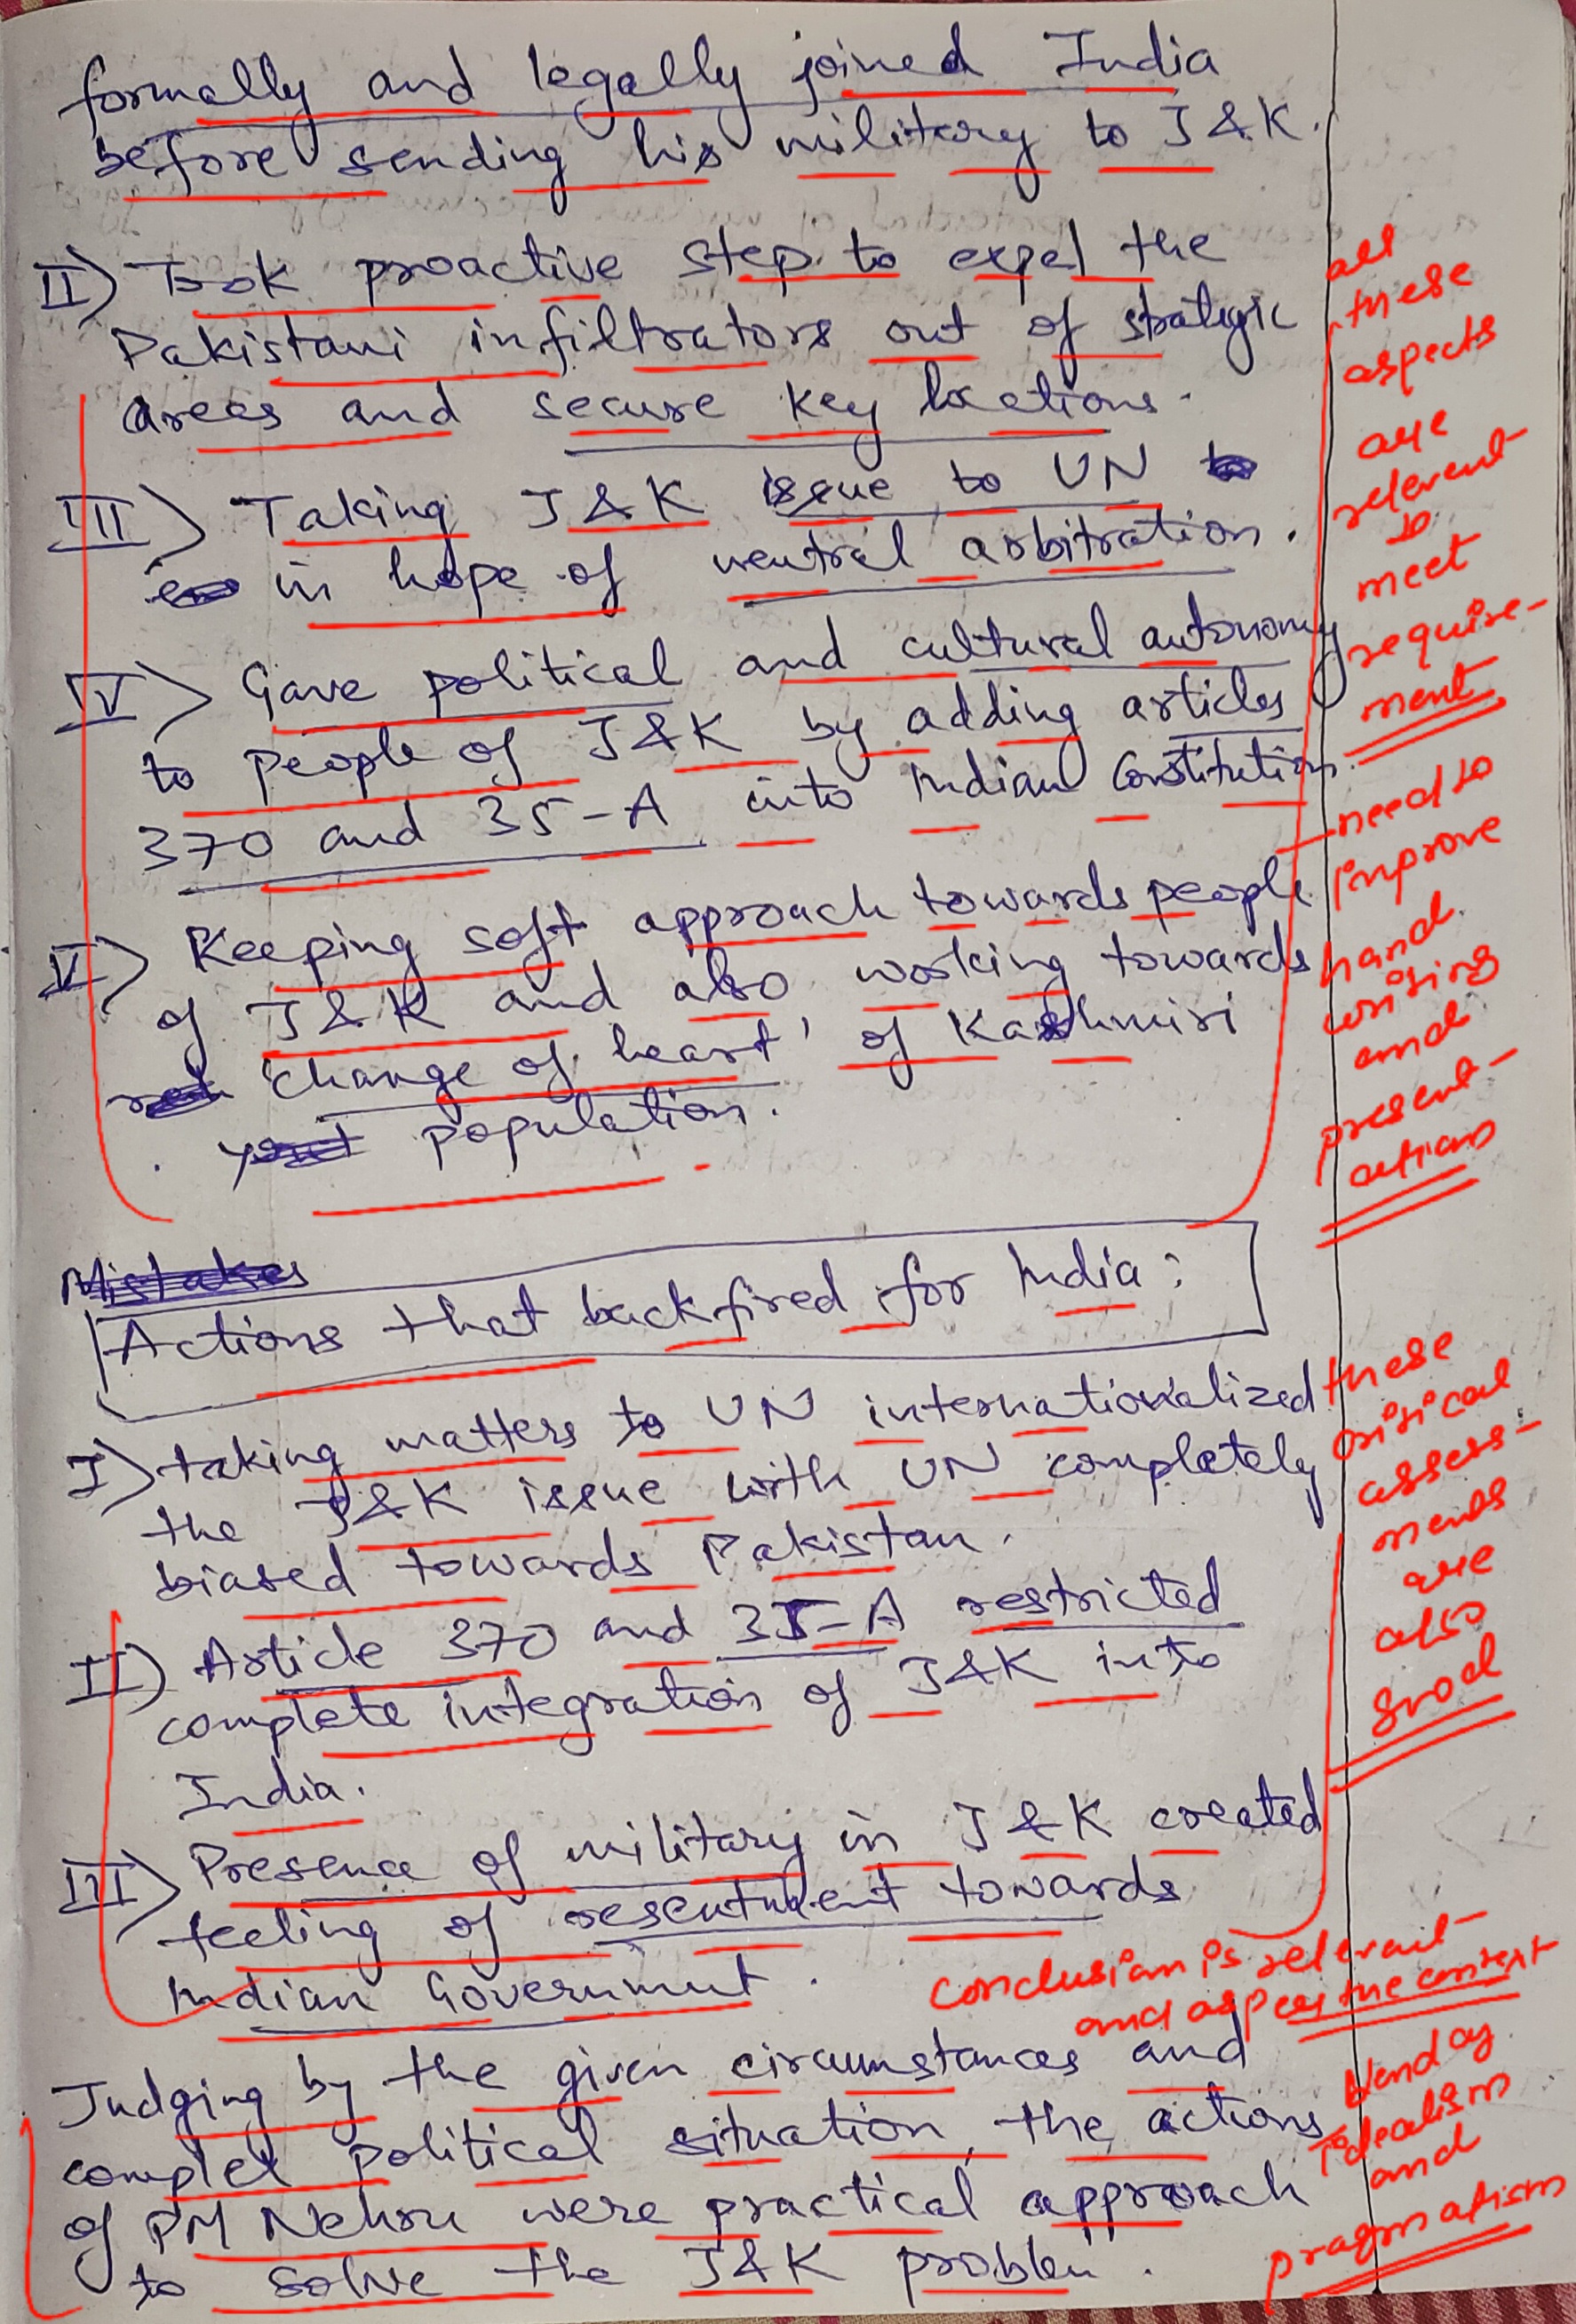 formally and legally joined India
before sending his military to J&K.
II) Took proactive step to expel the
Pakistani infiltrators out of strategic
areas and secure key locations.
III) Taking J&K issue to UN
in hope of neutral arbitration.
IV) Gave political and cultural autonomy
to people of J&K by adding articles
370 and 35-A into Indian Constitution.
V) Keeping soft approach towards people
of J&K and also working towards
'change of heart' of Kashmiri
population.
all
these
aspects
are
relevent
to
meet
require-
ment
need to
improve
hand
writing
and
present-
ations
Mistakes
Actions that backfired for India:
I) taking matters to UN internationalized
the J&K issue with UN completely
biased towards Pakistan.
II) Article 370 and 35-A restricted
complete integration of J&K into
India.
III) Presence of military in J&K created
feeling of resentment towards
Indian Government.
these
critical
assess-
ments
are
also
good
conclusion is relevant
and as per the context
Judging by the given circumstances and
complex political situation, the actions
of PM Nehru were practical approach
to solve the J&K problem.
blend of
Idealism
and
pragmatism